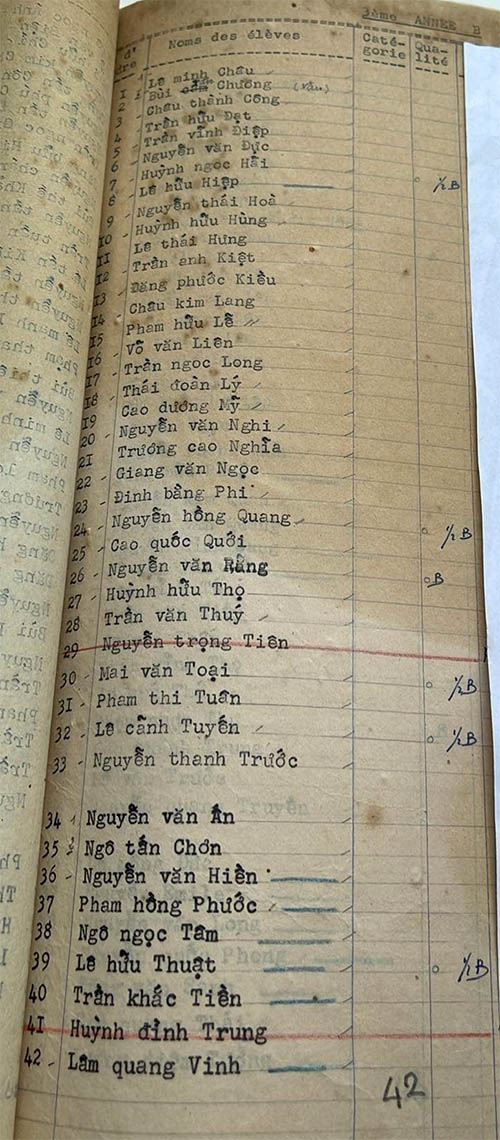 3ème ANNÉE B
d'
dre Noms des élèves Caté-
gorie Qua-
lité
1 Lê minh Châu
2 Bùi Chương
3 Châu thành Công
4 Trần hữu Đạt
5 Trần vĩnh Điệp
6 Nguyễn văn Đực
7 Huỳnh ngọc Hải
8 Lê hữu Hiệp ½B
9 Nguyễn thái Hoà
10 Huỳnh hữu Hùng
11 Lê thái Hưng
12 Trần anh Kiệt
13 Đặng phước Kiều
14 Châu kim Lang
15 Pham hữu Lễ
16 Võ văn Liên
17 Trần ngoc Long
18 Thái đoàn Lý
19 Cao dương Mỹ
20 Nguyễn văn Nghi
21 Trương cao Nghĩa
22 Giang văn Ngọc
23 Đinh bằng Phi
24 Nguyễn hồng Quang
25 Cao quốc Quới ½B
26 Nguyễn văn Rằng B
27 Huỳnh hữu Thọ
28 Trần văn Thuý
29 Nguyễn trọng Tiên
30 Mai văn Toại ½B
31 Pham thi Tuân
32 Lê cãnh Tuyến ½B
33 Nguyễn thanh Trước
34 Nguyễn văn Ấn
35 Ngô tấn Chơn
36 Nguyễn văn Hiền
37 Pham hồng Phước
38 Ngô ngọc Tâm
39 Lê hữu Thuật ½B
40 Trần khắc Tiền
41 Huỳnh đình Trung
42 Lâm quang Vinh
42